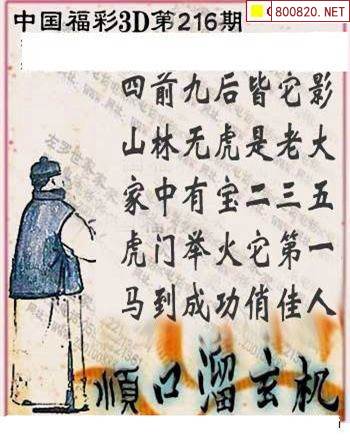 800820.NET
中国福彩3D第216期
四前九后皆它影
山林无虎是老大
家中有宝二三五
虎门举火它第一
马到成功俏佳人
順口溜玄机